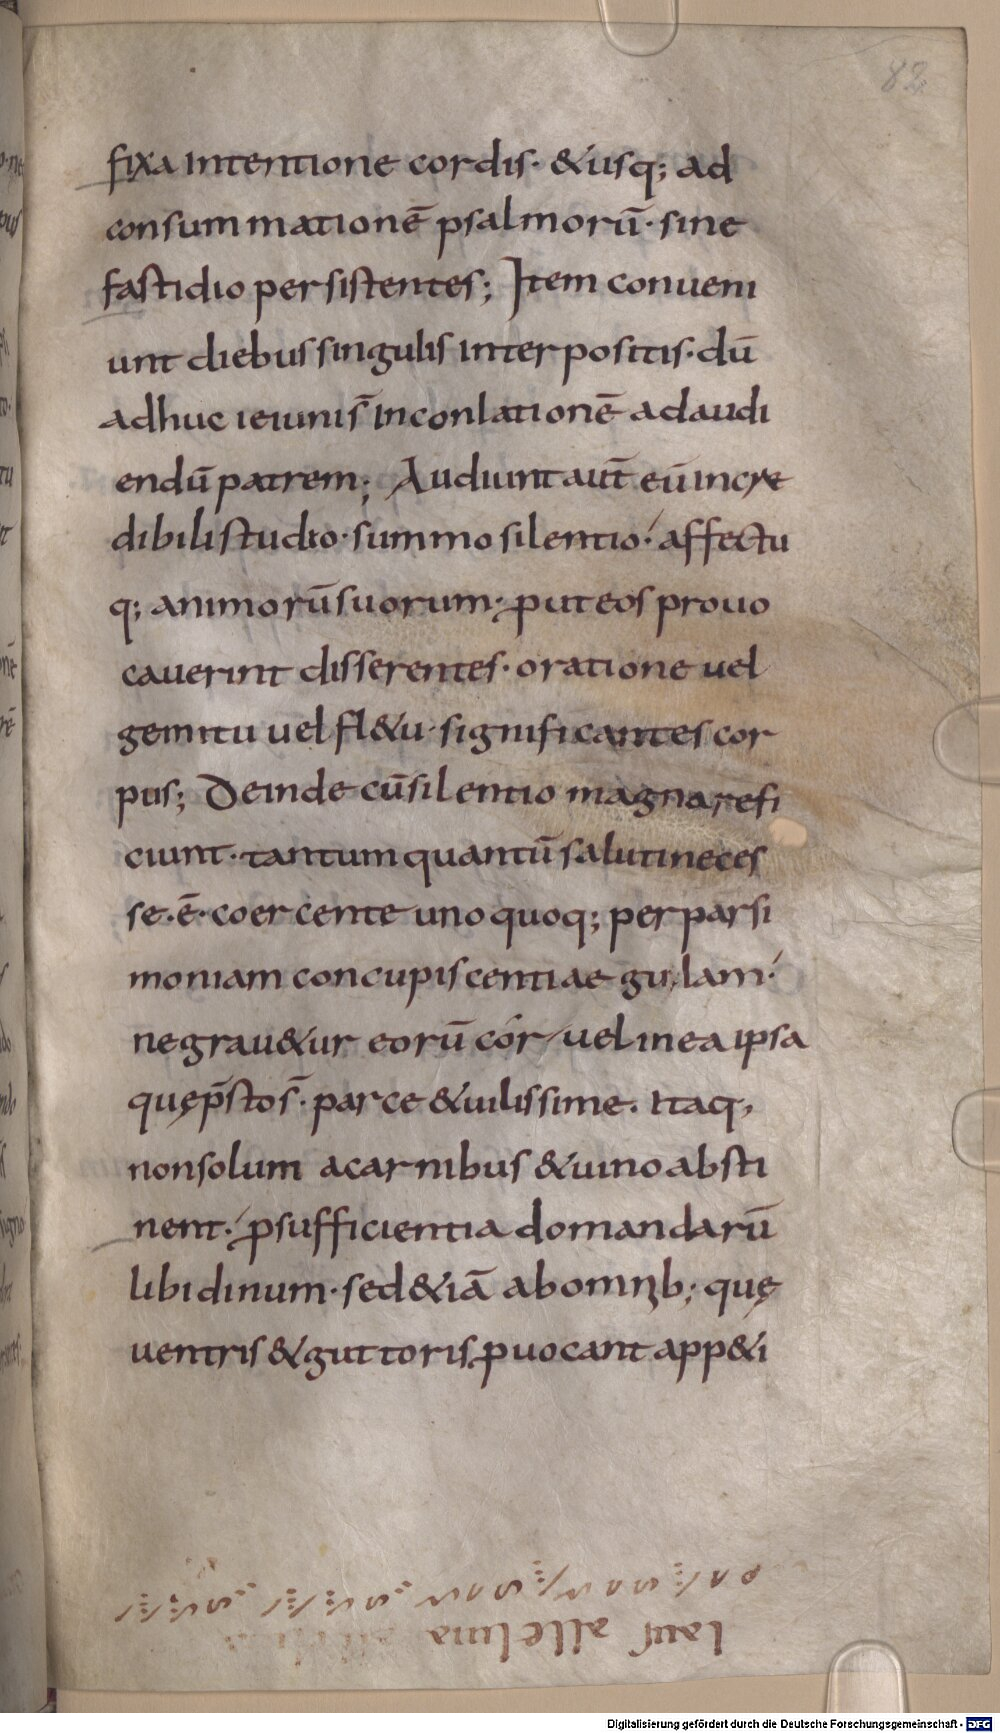 82
fixa intentione cordis· &usq; ad
consummationē psalmorū· sine
fastidio persistentes; Item conueni
unt diebus singulis interpositis· dū
adhuc ieiuni s̄ in conlationē ad audi
endū patrem; Audiunt aut̄ eū incre
dibili studio· summo silentio· affectu
q; animorū suorum· put eos prouo
cauerint disserentes· oratione uel
gemitu uel fl&u· significantes cor
pus; Deinde cū silentio magna refi
ciunt· tantum quantū saluti neces
se· ē· coercente uno quoq; per parsi
moniam concupiscentiae gulam·
ne grau&ur eorū cor uel in ea ipsa
quę p̄sto s̄· parce & uilissime. Itaq;
non solum a carnibus & uino absti
nent· p sufficientia domandarū
libidinum· sed &iā ab omnib; quę
uentris & gutturis puocant app&i
laus alleluia
Digitalisierung gefördert durch die Deutsche Forschungsgemeinschaft - DFG